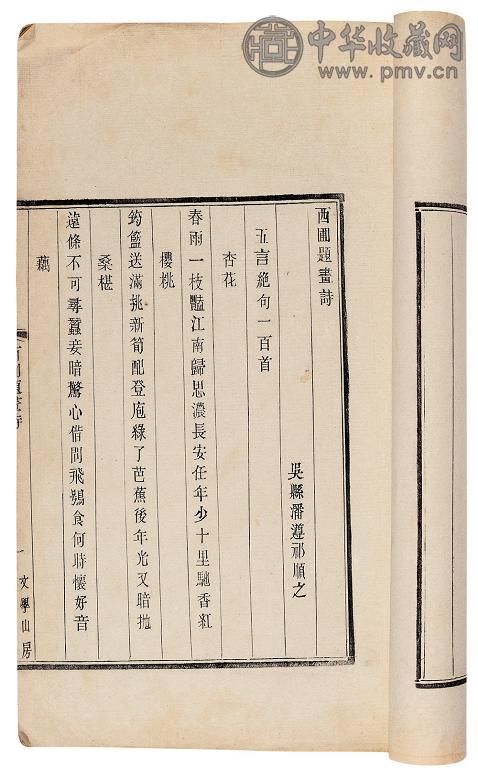 中华收藏网
www.pmv.cn
西圃題畫詩
吳縣潘遵祁順之
五言絶句一百首
杏花
春雨一枝豔江南歸思濃長安任年少十里馳香紅
櫻桃
筠籃送滿挑新筍配登庖綠了芭蕉後年光又暗拋
桑椹
遠條不可尋蠶妾暗驚心借問飛鴞食何時懷好音
藕
西圃題畫詩
一
文學山房